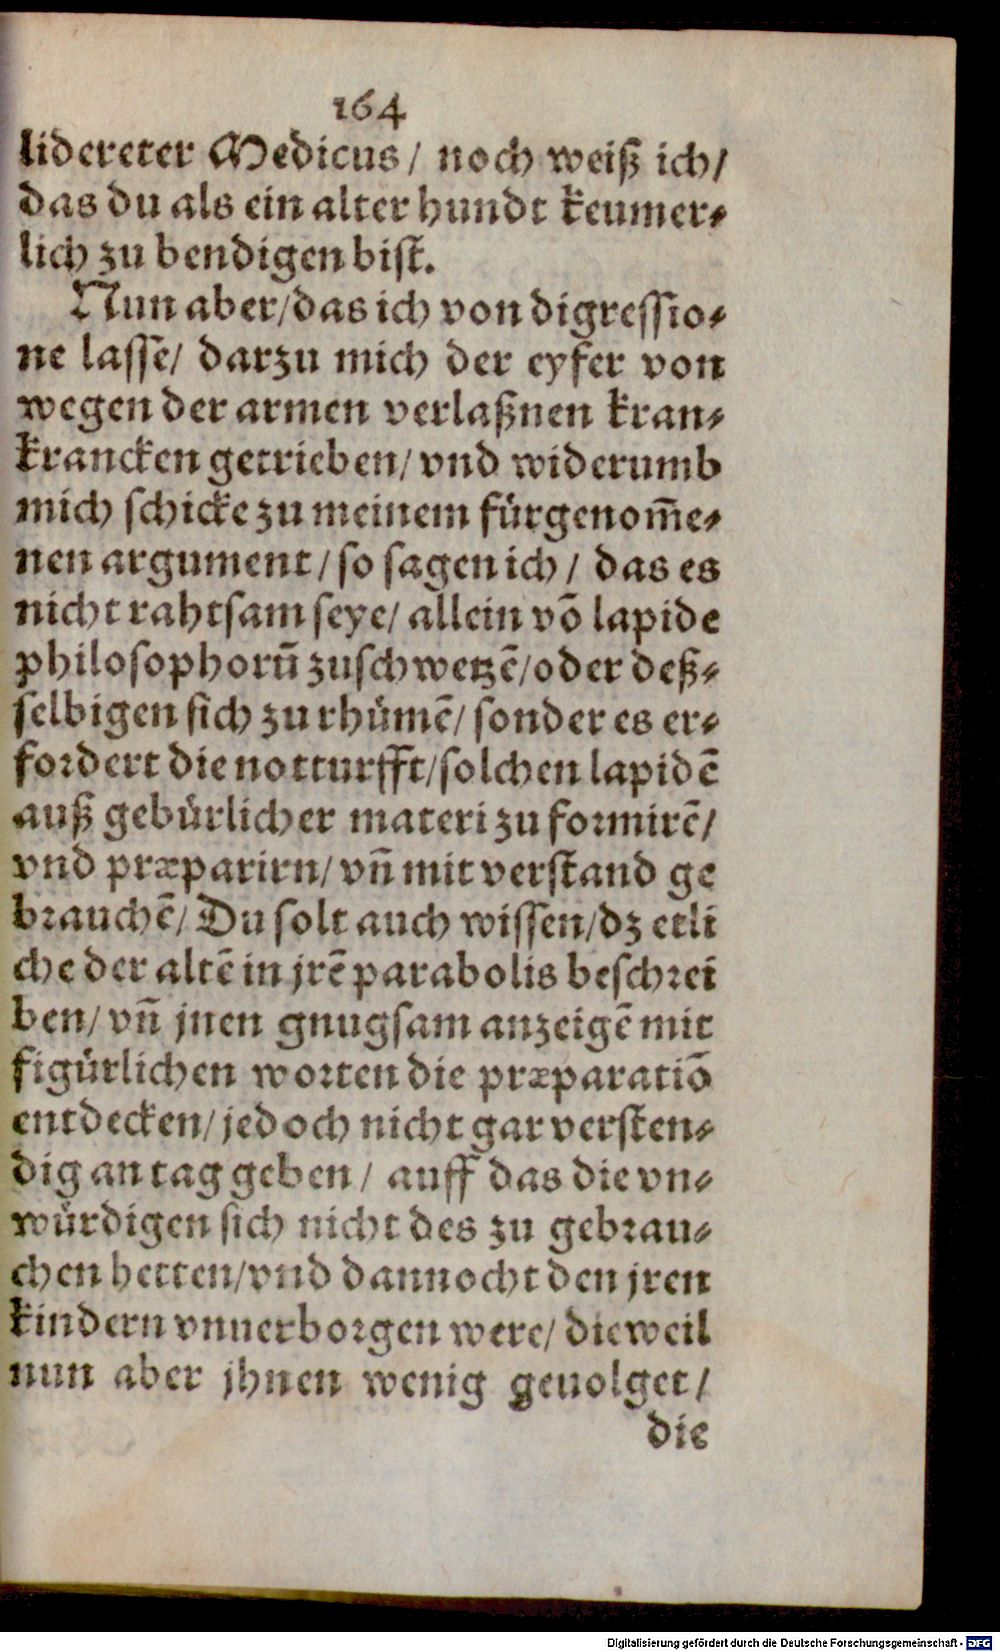 164
lidereter Medicus/ noch weiß ich/
das du als ein alter hundt keumer⸗
lich zu bendigen bist.
Nun aber/das ich von digressio⸗
ne lasse/ darzu mich der eyfer von
wegen der armen verlaßnen kran⸗
krancken getrieben/ vnd widerumb
mich schicke zu meinem fürgenom̃e⸗
nen argument/ so sagen ich/ das es
nicht rahtsam seye/ allein võ lapide
philosophorũ zuschwetzẽ/oder deß⸗
selbigen sich zu rhümẽ/ sonder es er⸗
fordert die notturfft/solchen lapidẽ
auß gebürlicher materi zu formirẽ/
vnd præparirn/ vñ mit verstand ge
brauchẽ/ Du solt auch wissen/dz etli
che der altẽ in jrẽ parabolis beschrei
ben/ vñ jnen gnugsam anzeigẽ mit
figürlichen worten die præparatiõ
entdecken/ jedoch nicht gar versten⸗
dig an tag geben/ auff das die vn⸗
würdigen sich nicht des zu gebrau⸗
chen hetten/vnd dannocht den jren
kindern vnuerborgen were/ dieweil
nun aber jhnen wenig geuolget/
die
Digitalisierung gefördert durch die Deutsche Forschungsgemeinschaft - DFG